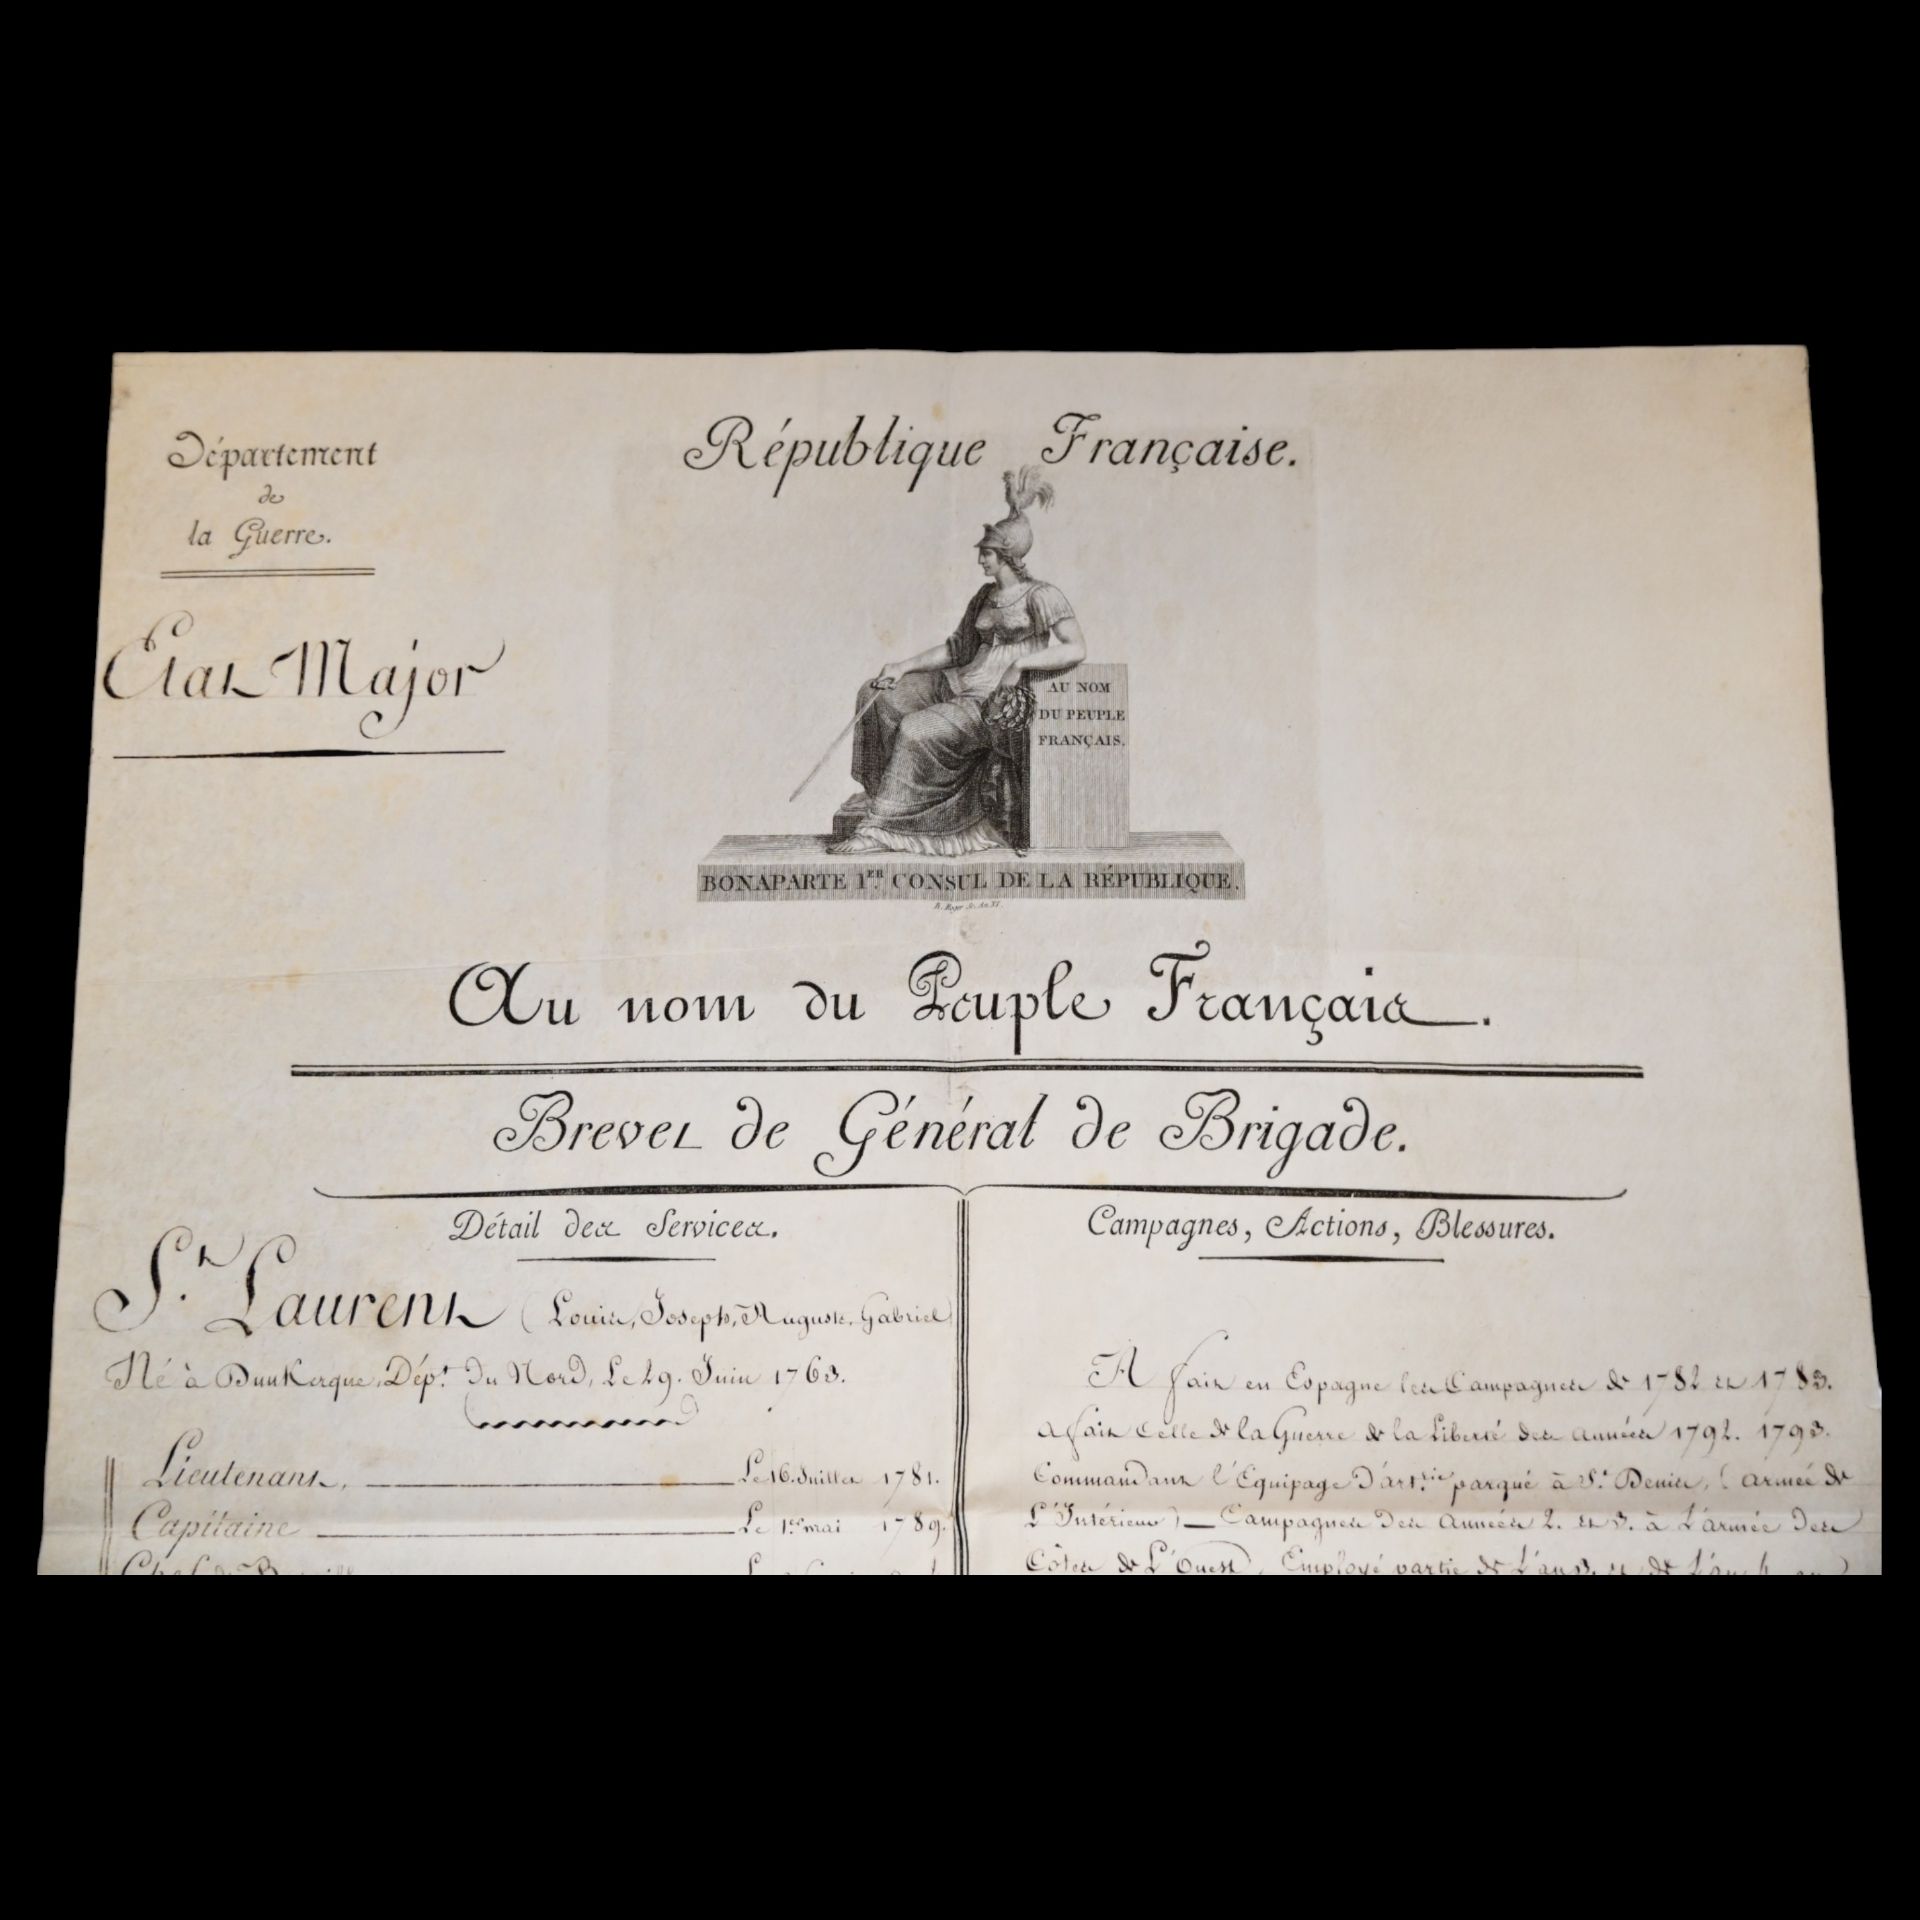 République Française.
Département
de
la Guerre.
Etat Major
AU NOM
DU PEUPLE
FRANÇAIS.
BONAPARTE 1.ER CONSUL DE LA RÉPUBLIQUE.
B. Roger Sc. An XI.
Au nom du Peuple Français.
Brevet de Général de Brigade.
Détail des Services.
St. Laurent (Louis, Joseph, Auguste, Gabriel)
Né à Dunkerque, Dépt. du Nord, Le 29. Juin 1763.
Lieutenant, Le 16. Juillet 1781.
Capitaine Le 1er mai 1789.
Campagnes, Actions, Blessures.
A fait en Espagne les Campagnes de 1782 et 1783.
a fait celle de la Guerre de la Liberté des années 1792. 1793.
Commandant l'Equipage d'art.rie parqué à St. Denis, (armée de
L'Intérieur) — Campagnes des années 2. et 3. à L'armée des
Côtes de L'Ouest, Employé partie de L'an 3. et de L'an 4. en